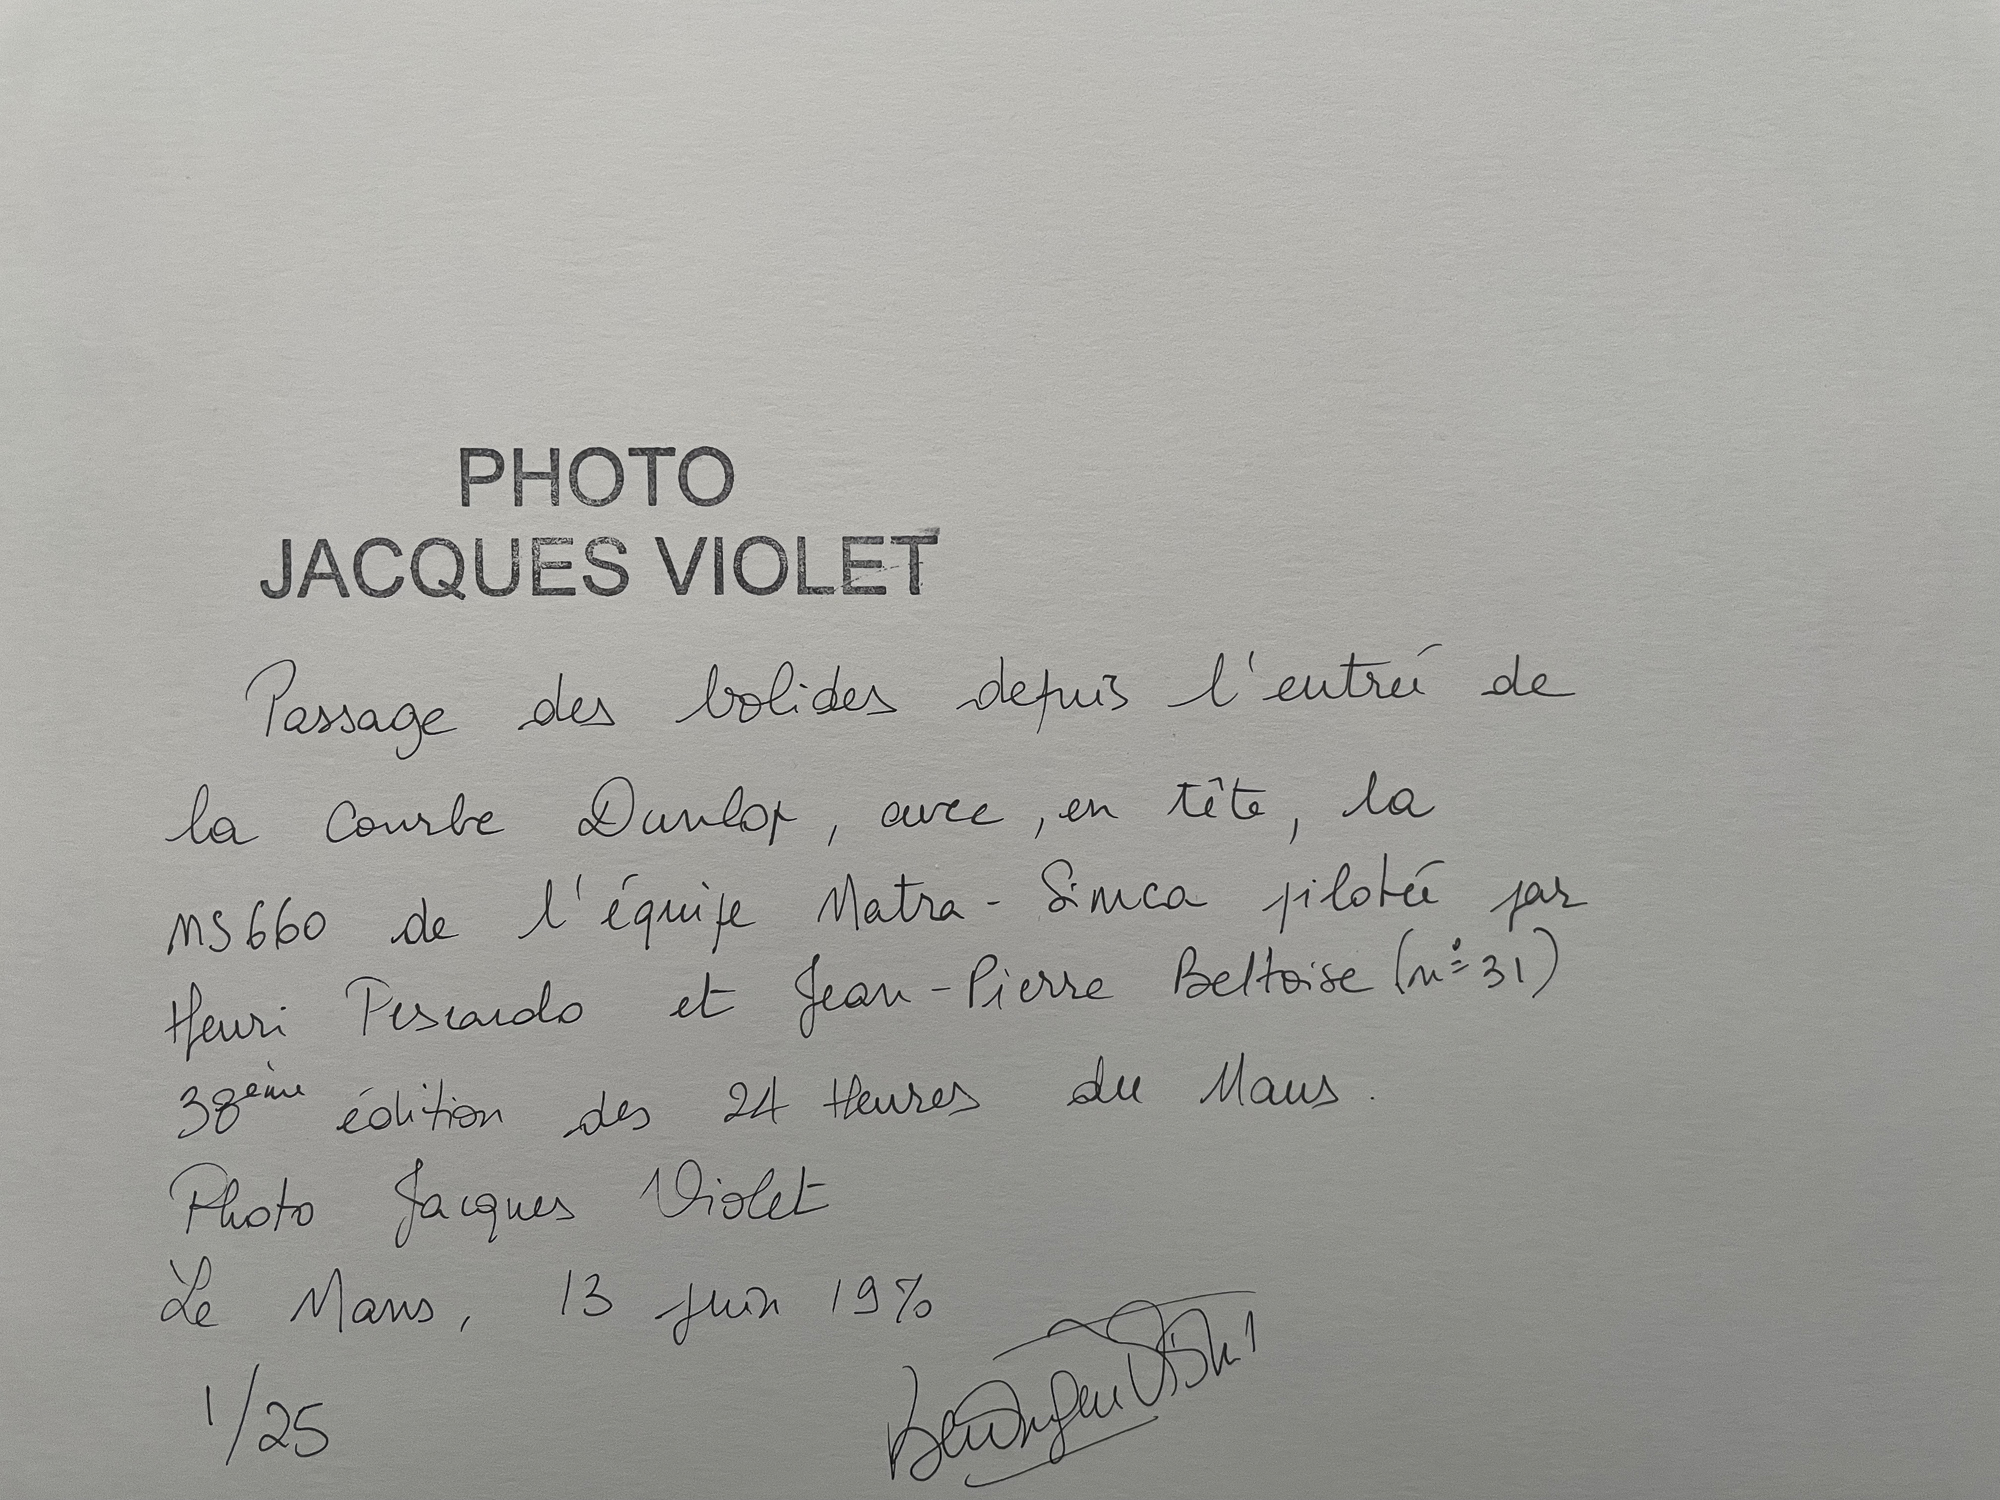 PHOTO
JACQUES VIOLET
Passage des bolides depuis l'entrée de
la courbe Dunlop, avec, en tête, la
MS660 de l'équipe Matra-Simca pilotée par
Henri Pescarolo et Jean-Pierre Beltoise (n° 31)
38ème édition des 24 Heures du Mans.
Photo Jacques Violet
Le Mans, 13 juin 1970
1/25